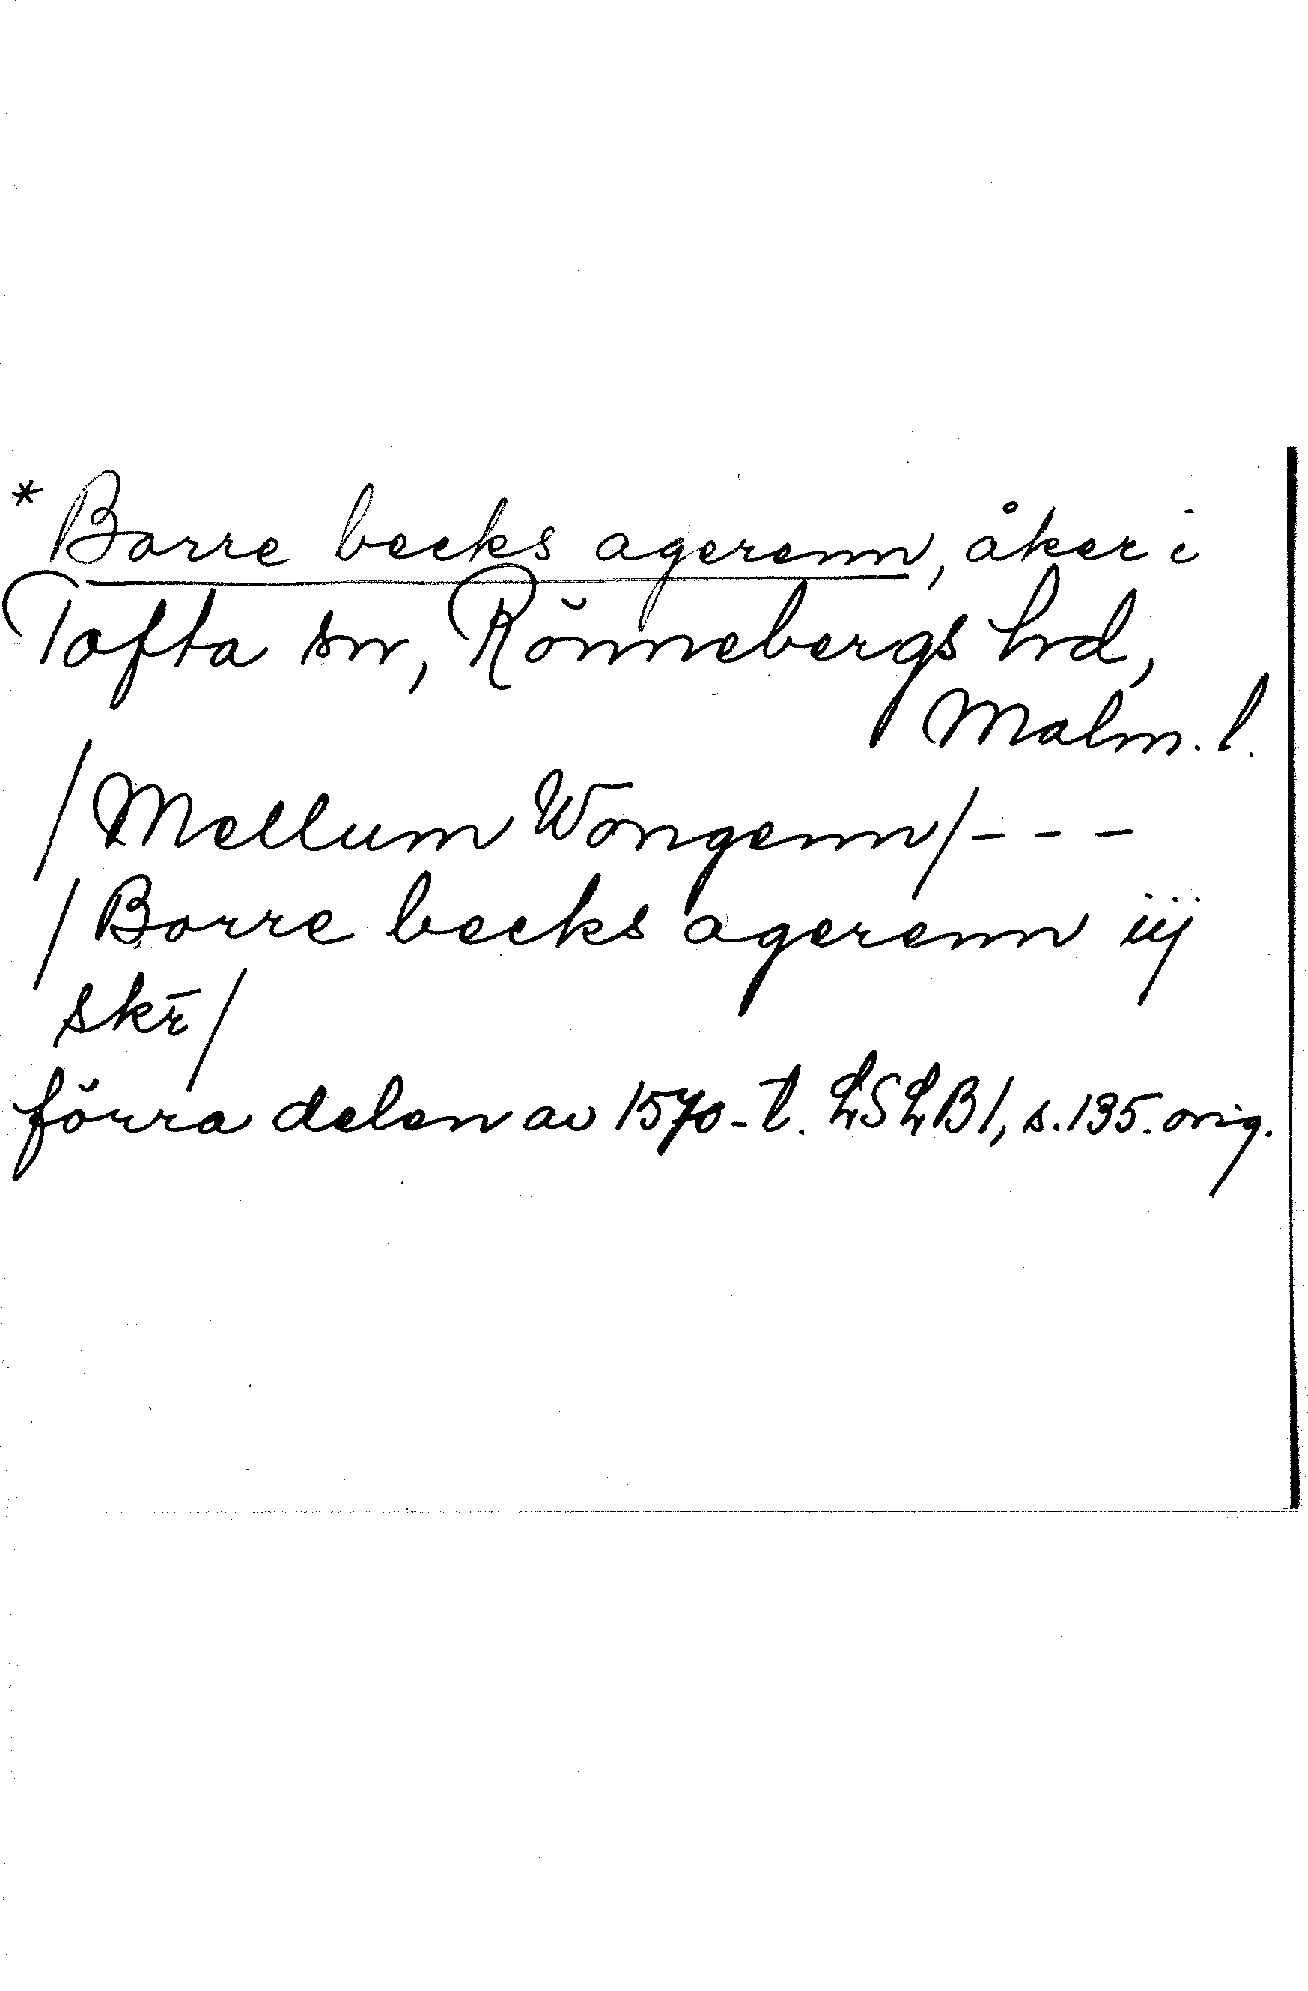 * Borre becks agerenn, åker i
Tofta sn, Rönnebergs hd,
Malm. l.
/Mellum Wongenn/ - - -
/Borre becks agerenn iij
skr̄/
förra delen av 1570-t. LSLB1, s. 135. orig.